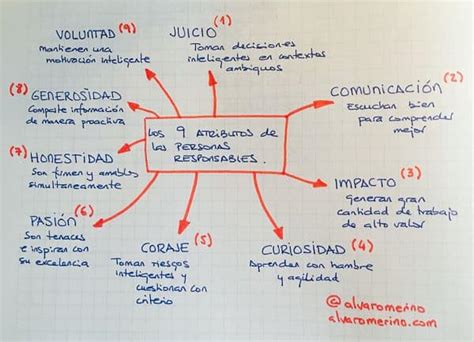 LOS 9 ATRIBUTOS DE
LAS PERSONAS
RESPONSABLES.
JUICIO (1)
Toman decisiones
inteligentes en contextos
ambiguos
COMUNICACIÓN (2)
Escuchan bien
para comprender
mejor
IMPACTO (3)
Generan gran
cantidad de trabajo
de alto valor
CURIOSIDAD (4)
Aprenden con hambre
y agilidad
CORAJE (5)
Toman riesgos
inteligentes y
cuestionan con
criterio
PASIÓN (6)
Son tenaces
e inspiran con
su excelencia
(7) HONESTIDAD
Son firmes y amables
simultaneamente
(8) GENEROSIDAD
Comparte información
de manera proactiva
VOLUNTAD (9)
mantienen una
motivación inteligente
@alvaromerino
alvaromerino.com